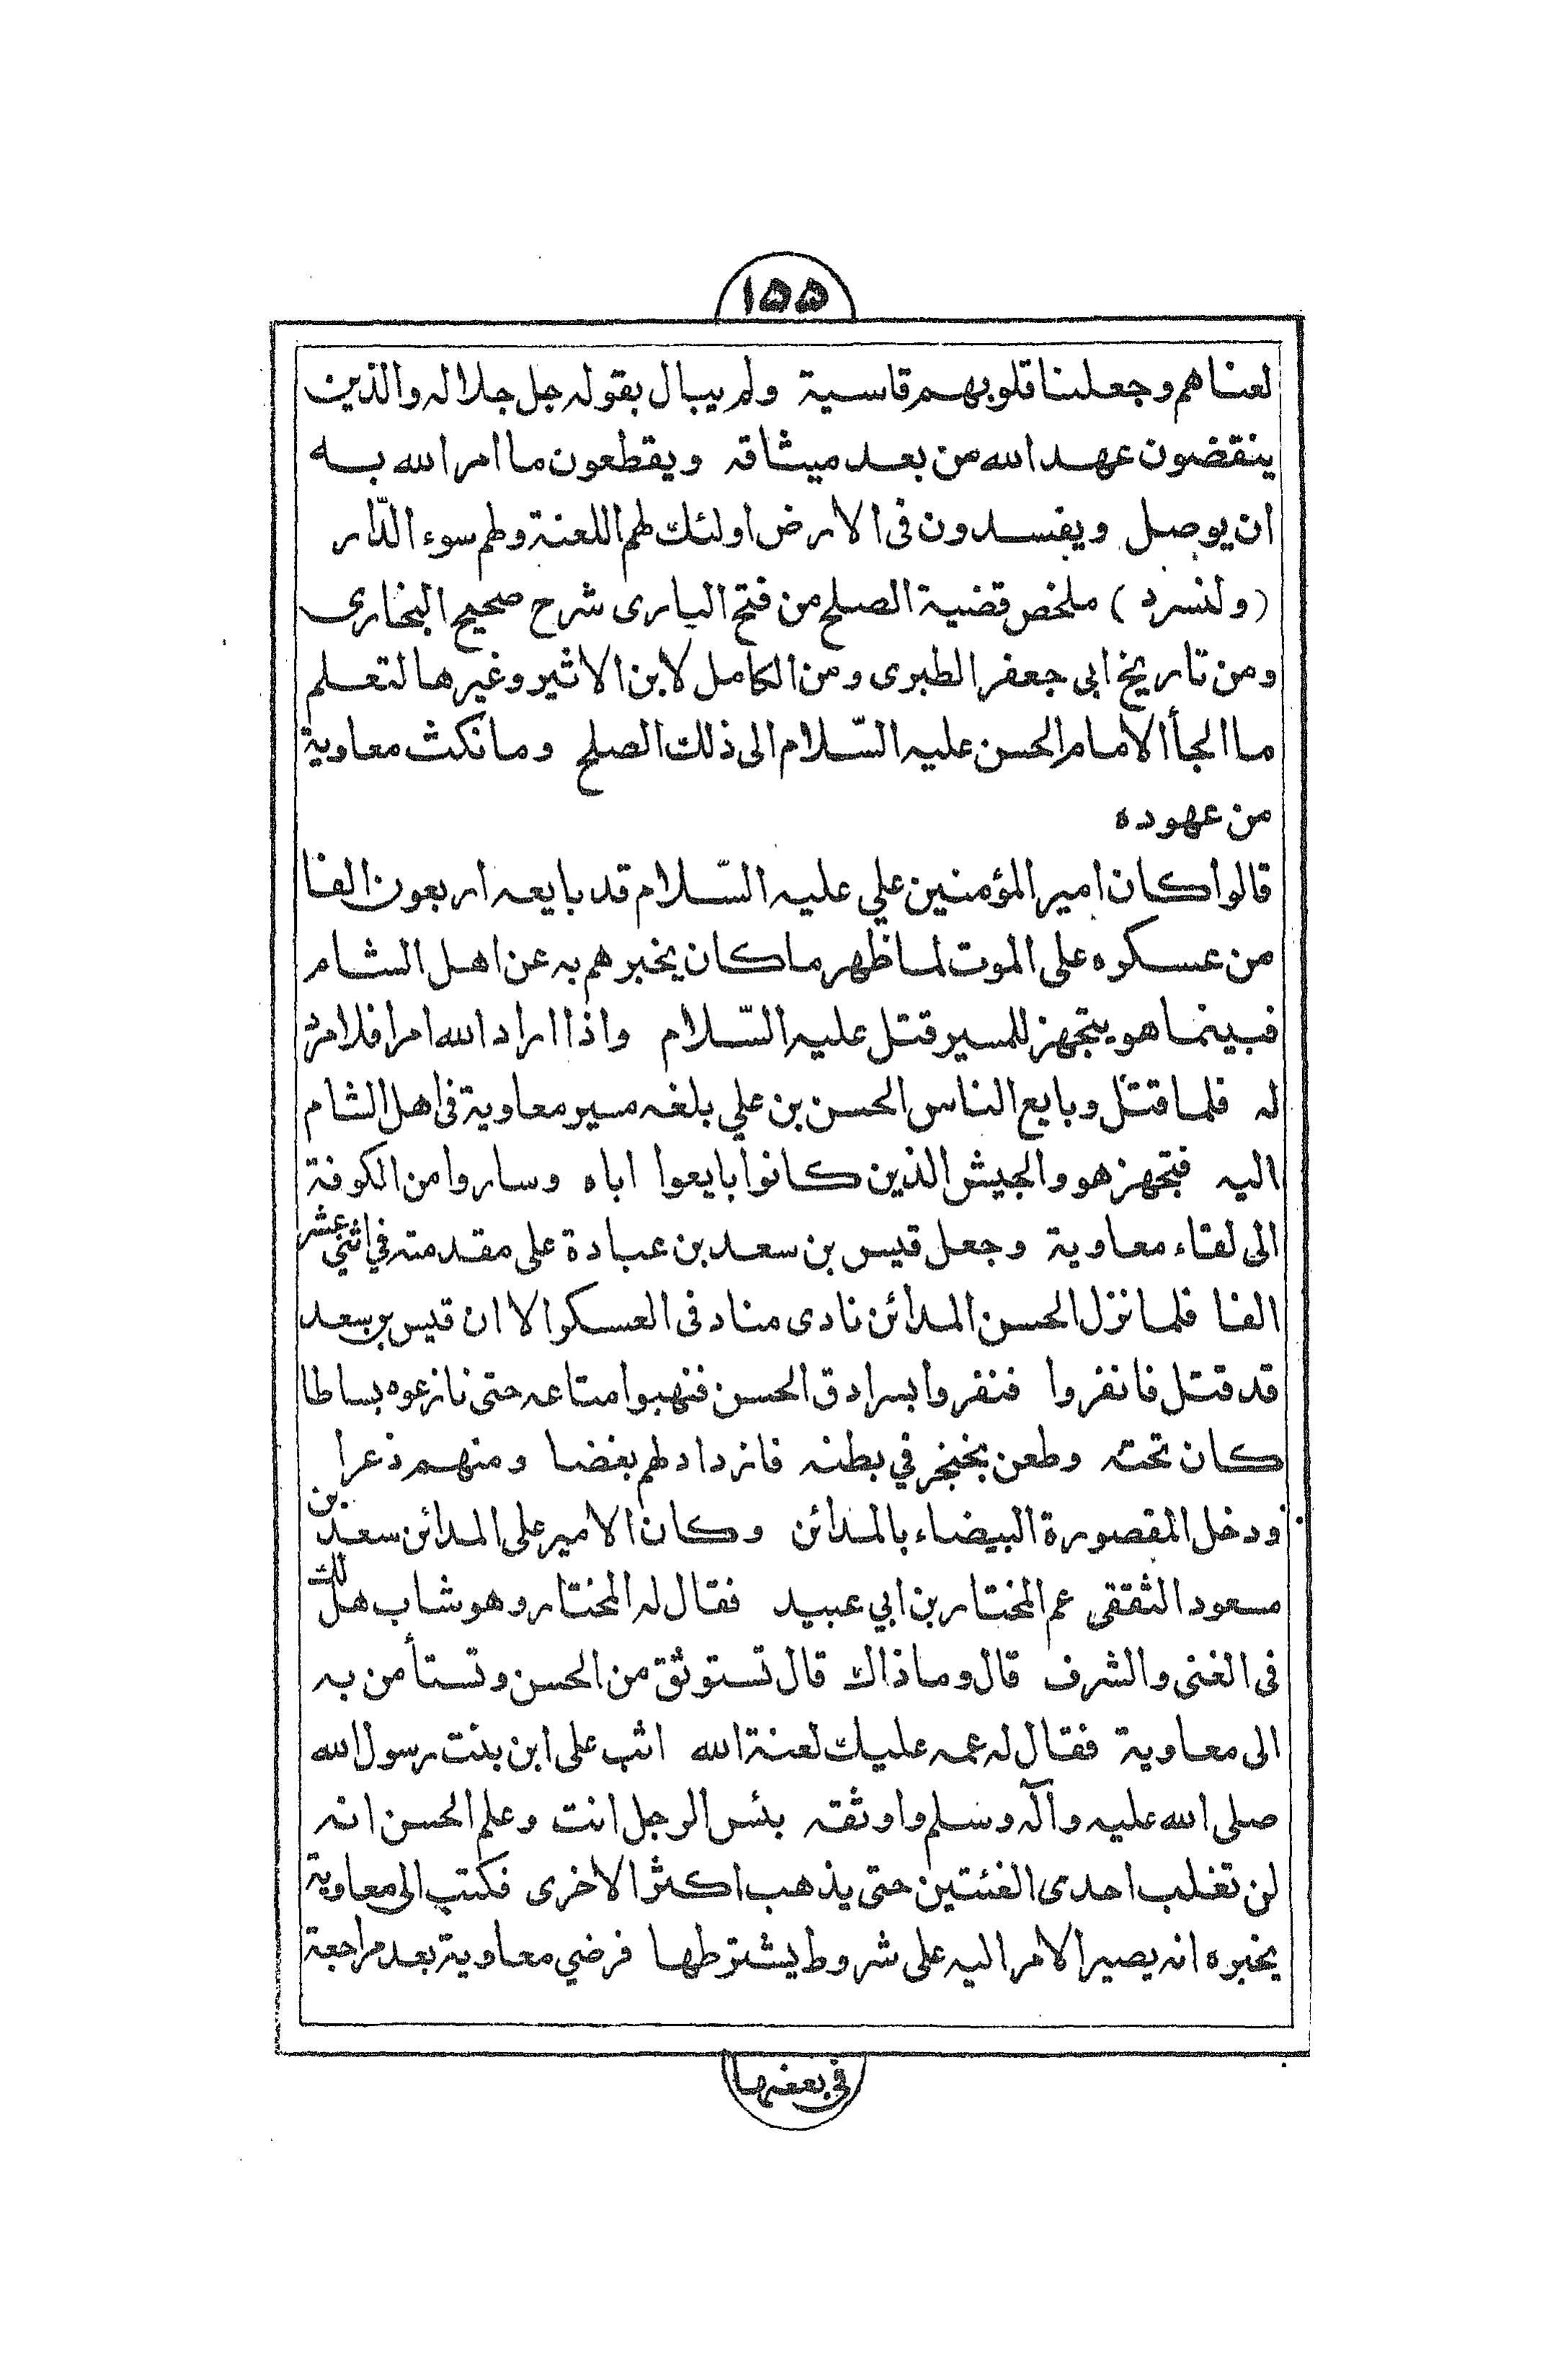 ١٥٥
لعناهم وجعلنا قلوبهم قاسية ولم يبال بقوله جل جلاله والذين
ينقضون عهد الله من بعد ميثاقه ويقطعون ما امر الله به
ان يوصل ويفسدون فى الارض اولئك لهم اللعنة ولهم سوء الدّار
(ولنسرد) ملخص قضية الصلح من فتح البارى شرح صحيح البخارى
ومن تاريخ ابى جعفر الطبرى ومن الكامل لابن الاثير وغيرها لتعلم
ما الجأ الامام الحسن عليه السّلام الى ذلك الصلح وما نكث معاوية
من عهوده
قالوا كان امير المؤمنين علي عليه السّلام قد بايعه اربعون الفا
من عسكره على الموت لما ظهر ما كان يخبرهم به عن اهل الشام
فبينما هو يتجهز للمسير قتل عليه السّلام واذا اراد الله امرا فلا مرد
له فلما قتل وبايع الناس الحسن بن علي بلغه مسير معاوية فى اهل الشام
اليه فتجهز هو والجيش الذين كانوا بايعوا اباه وساروا من الكوفة
الى لقاء معاوية وجعل قيس بن سعد بن عبادة على مقدمته في اثني عشر
الفا فلما نزل الحسن المدائن نادى مناد فى العسكر الا ان قيس بن سعد
قد قتل فانفروا فنفروا بسرادق الحسن فنهبوا متاعه حتى نازعوه بساطا
كان تحته وطعن بخنجر في بطنه فازداد لهم بغضا ومنهم ذعرا
ودخل المقصورة البيضاء بالمدائن وكان الامير على المدائن سعد بن
مسعود الثقفى عم المختار بن ابي عبيد فقال له المختار وهو شاب هل لك
فى الغنى والشرف قال وما ذاك قال تستوثق من الحسن وتستأمن به
الى معاوية فقال له عمه عليك لعنة الله اثب على ابن بنت رسول الله
صلى الله عليه وآله وسلم واوثقه بئس الرجل انت وعلم الحسن انه
لن تغلب احدى الفئتين حتى يذهب اكثر الاخرى فكتب الى معاوية
يخبره انه يصير الامر اليه على شروط يشترطها فرضي معاوية بعد مراجعة
فى بعضها